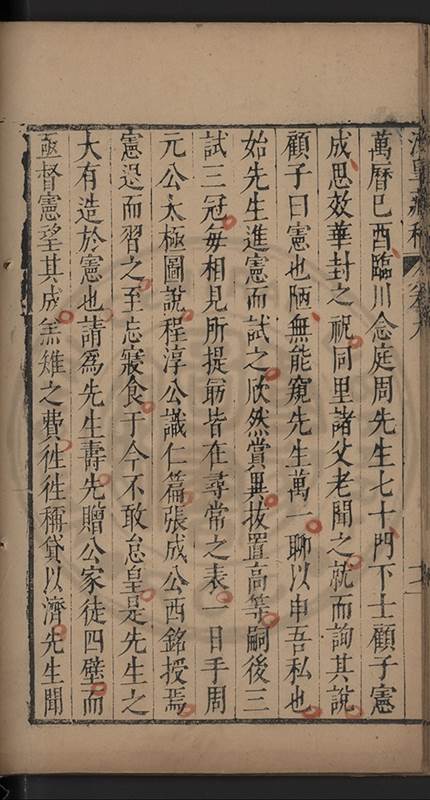 萬曆己酉臨川念庭周先生七十門下士顧子憲
成思效華封之祝同里諸父老聞之就而詢其說
顧子曰憲也陋無能窺先生萬一聊以申吾私也
始先生進憲而試之欣然賞異拔置高等嗣後三
試三冠每相見所提勗皆在尋常之表一日手周
元公太極圖說程淳公識仁篇張成公西銘授焉
憲退而習之至忘寢食于今不敢怠皇是先生之
大有造於憲也請為先生壽先贈公家徒四壁而
亟督憲望其成羔雉之費徃徃稱貸以濟先生聞